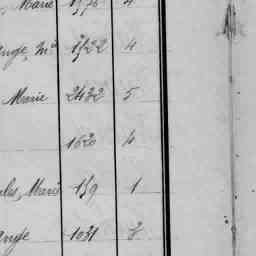 Marie 1576 4
ange, Mie 1722 4
Marie 2432 5
1620 4
ules, Marie 159 1
ange 1031 3